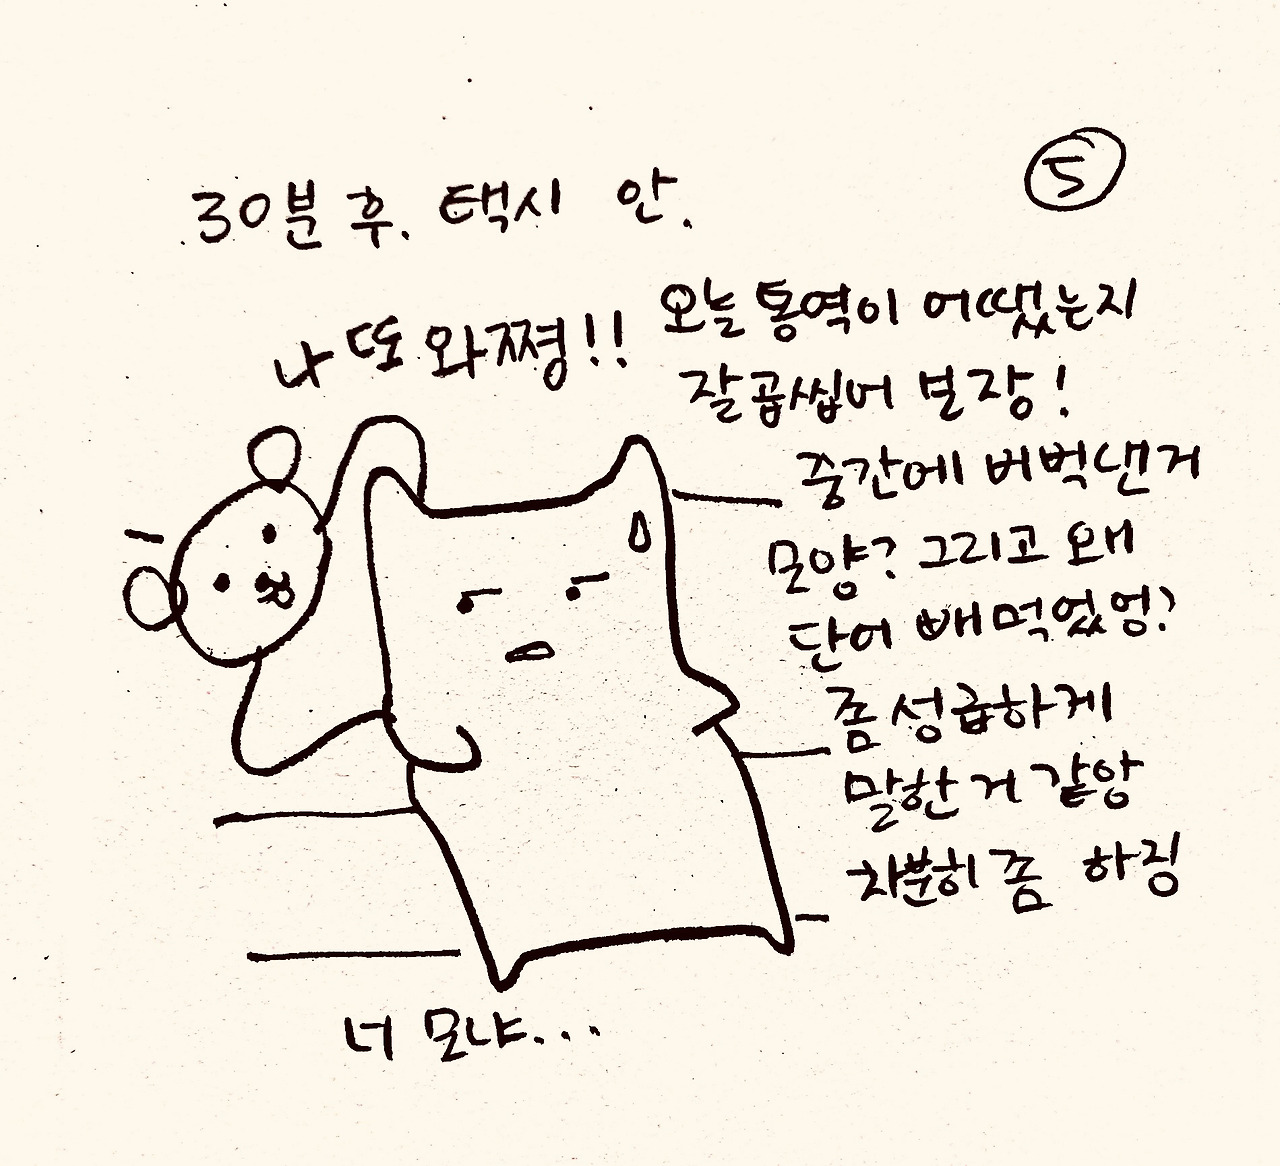 ⑤
30분 후. 택시 안.
나 또 와쪙!!
오늘 통역이 어땠는지
잘 곱씹어 보장!
중간에 버벅댄거
모양? 그리고 왜
단어 빼먹었엉?
좀 성급하게
말한 거 같앙
차분히 좀 하징
너 모냐...